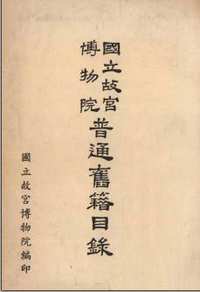 國立故宮
博物院
普通舊籍目錄
國立故宮博物院編印